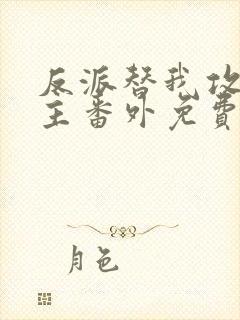 反派替我攻
主番外免費
月色